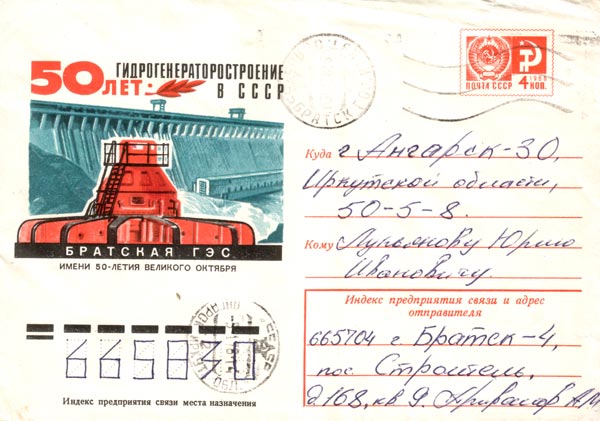 50 ЛЕТ
ГИДРОГЕНЕРАТОРОСТРОЕНИЕ
В СССР
БРАТСКАЯ ГЭС
ИМЕНИ 50-ЛЕТИЯ ВЕЛИКОГО ОКТЯБРЯ
1966
ПОЧТА СССР
4 КОП.
БРАТСК
Куда г Ангарск-30,
Иркутской области,
50-5-8.
Кому Лукьянову Юрию
Ивановичу.
Индекс предприятия связи и адрес
отправителя
665704 г Братск-4,
пос. Строитель,
д. 168, кв 9. А М
665830
Индекс предприятия связи места назначения